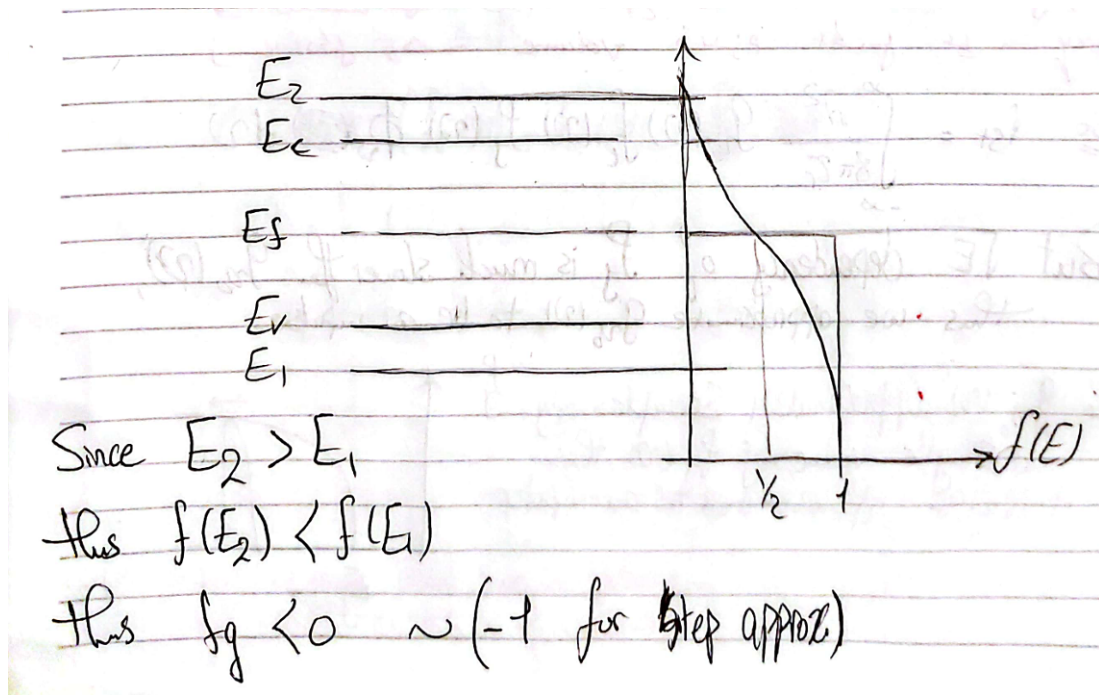 E2
Ec
Ef
Ev
E1
f(E)
1/2 1
Since E2 > E1
thus f(E2) < f(E1)
thus fg < 0 ~ (-1 for step approx)